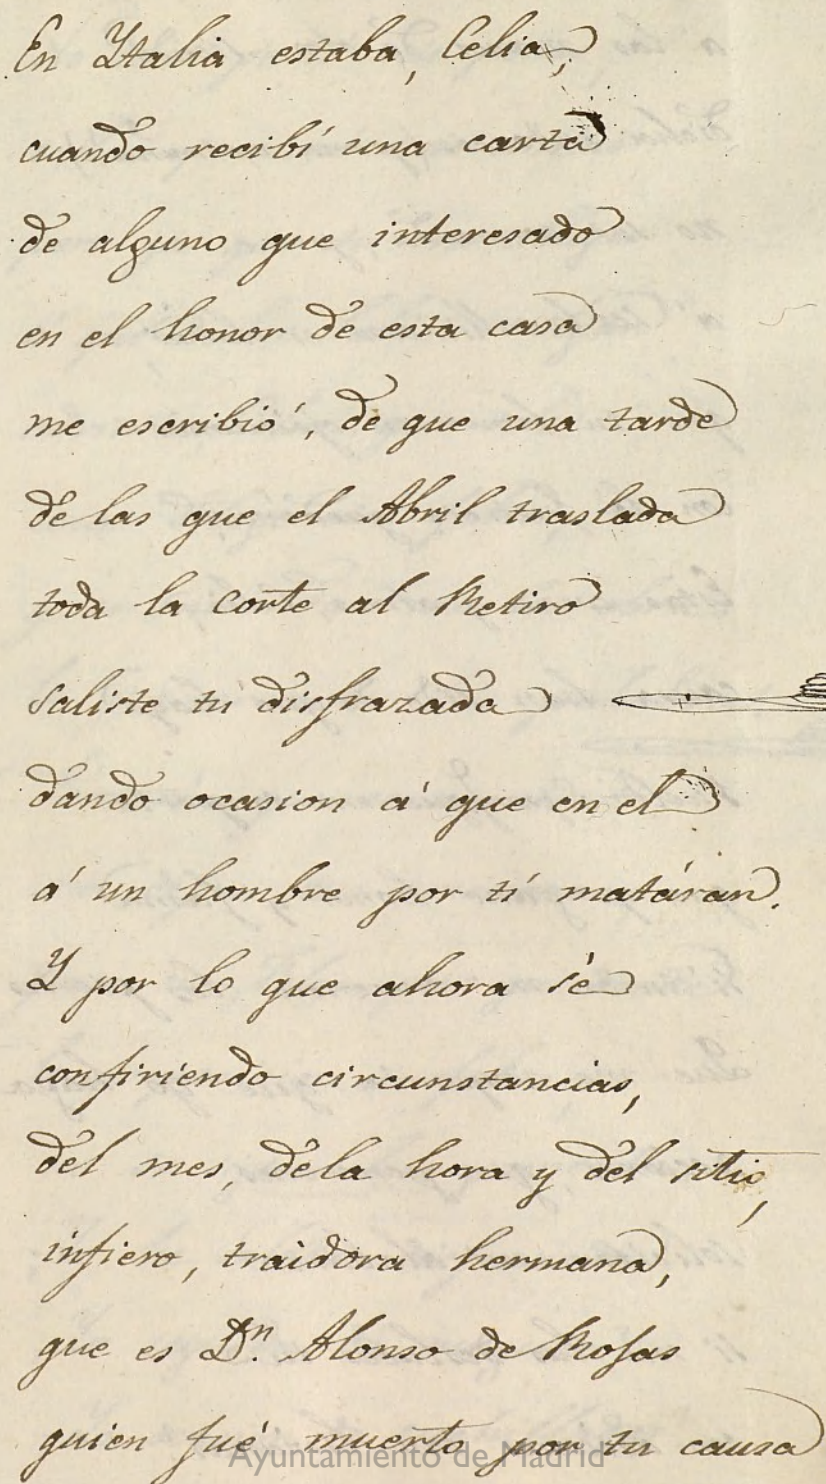 En Ytalia estaba, Celia,
cuando recibí una carta
de alguno que interesado
en el honor de esta casa
me escribió, de que una tarde
de las que el Abril traslada
toda la Corte al Retiro
saliste tu disfrazada
dando ocasion á que en el
á un hombre por tí matáran.
Y por lo que ahora sé
confiriendo circunstancias,
del mes, dela hora y del sitio,
infiero, traidora hermana,
que es Dn. Alonso de Rosas
quien fué muerto por tu causa
Ayuntamiento de Madrid